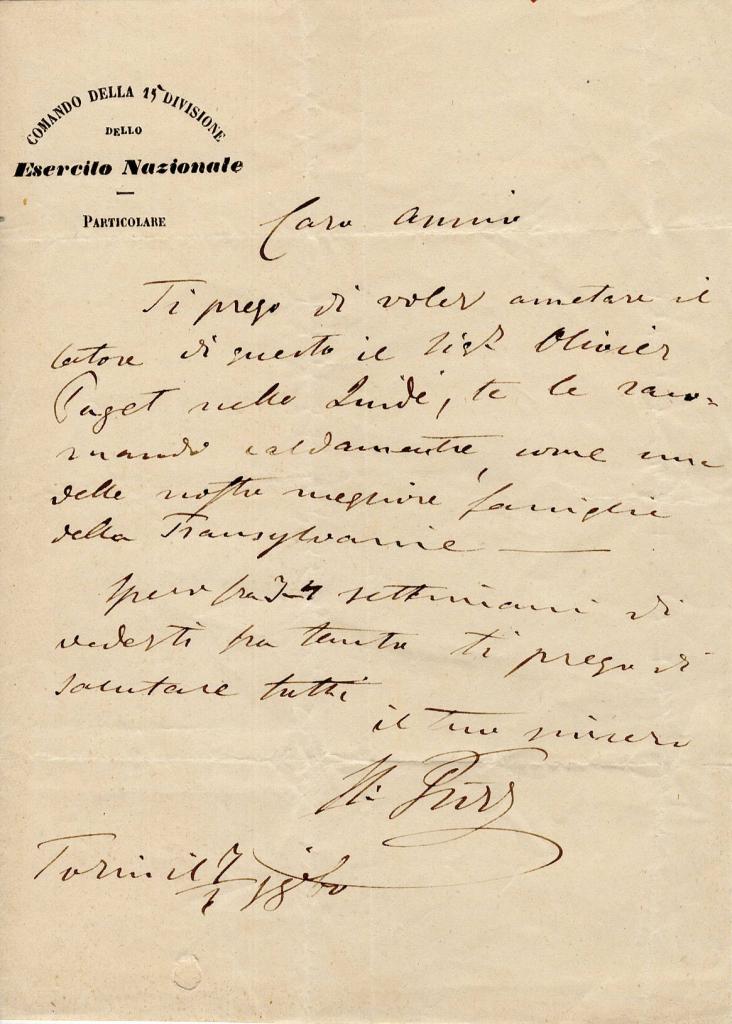 COMANDO DELLA 15ª DIVISIONE
DELLO
Esercito Nazionale
PARTICOLARE
Caro amico
Ti prego di voler accetare il
latore di questo il Sigr Olivier
Paget nelle Guide, te le raco=
mando caldamentre, come una
delle nostre megliore famiglie
della Transylvanie —
Spero fra 3–4 settimani di
vederti fra tento ti prego di
salutare tutti
il tuo sincero
Torin il 7